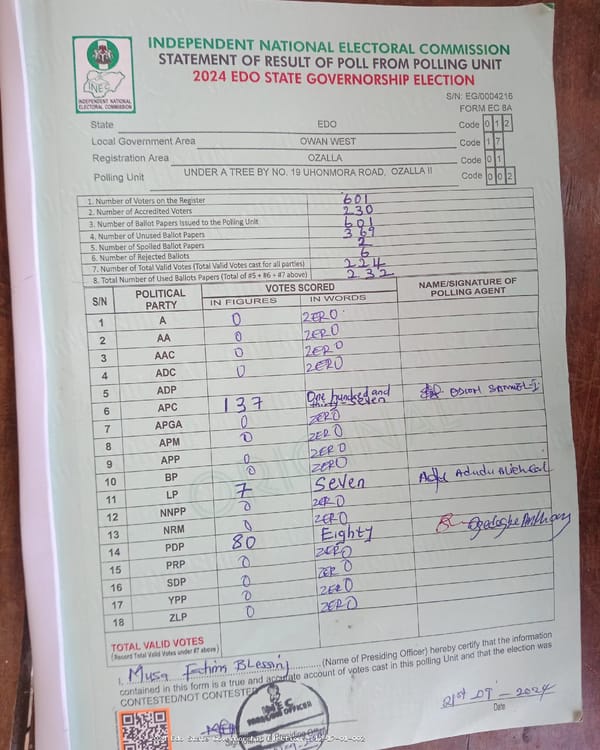 INDEPENDENT NATIONAL ELECTORAL COMMISSION
STATEMENT OF RESULT OF POLL FROM POLLING UNIT
2024 EDO STATE GOVERNORSHIP ELECTION
INEC
INDEPENDENT NATIONAL
ELECTORAL COMMISSION
S/N: EG/0004216
FORM EC 8A
State EDO Code 0 1 2
Local Government Area OWAN WEST Code 1 7
Registration Area OZALLA Code 0 1
Polling Unit UNDER A TREE BY NO. 19 UHONMORA ROAD, OZALLA II Code 0 0 2
1. Number of Voters on the Register 601
2. Number of Accredited Voters 230
3. Number of Ballot Papers Issued to the Polling Unit 601
4. Number of Unused Ballot Papers 369
5. Number of Spoiled Ballot Papers 2
6. Number of Rejected Ballots 6
7. Number of Total Valid Votes (Total Valid Votes cast for all parties) 224
8. Total Number of Used Ballots Papers (Total of #5 + #6 + #7 above) 232
S/N POLITICAL PARTY VOTES SCORED NAME/SIGNATURE OF POLLING AGENT
IN FIGURES IN WORDS
1 A 0 ZERO
2 AA 0 ZERO
3 AAC 0 ZERO
4 ADC 0 ZERO
5 ADP
6 APC 137 One hundred and thirty-seven
7 APGA 0 ZERO
8 APM 0 ZERO
9 APP 0 ZERO
10 BP 0 ZERO
11 LP 7 Seven
12 NNPP 0 ZERO
13 NRM 0 ZERO
14 PDP 80 Eighty
15 PRP 0 ZERO
16 SDP 0 ZERO
17 YPP 0 ZERO
18 ZLP 0 ZERO
ORIGINAL
TOTAL VALID VOTES
(Record Total Valid Votes under #7 above)
I, Musa Fatima Blessing (Name of Presiding Officer) hereby certify that the information
contained in this form is a true and accurate account of votes cast in this polling Unit and that the election was
CONTESTED/NOT CONTESTED
INEC
PRESIDING OFFICER
Date